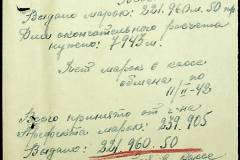 Выдано марок: 221.960 м. 50 пф
Для окончательного расчета
нужно: 7943 м.
Ост марок в кассе
обмена по
11/II-42
Всего принято от г-на
Префекта марок: 239.905
Выдано: 221,960.50
в кассе